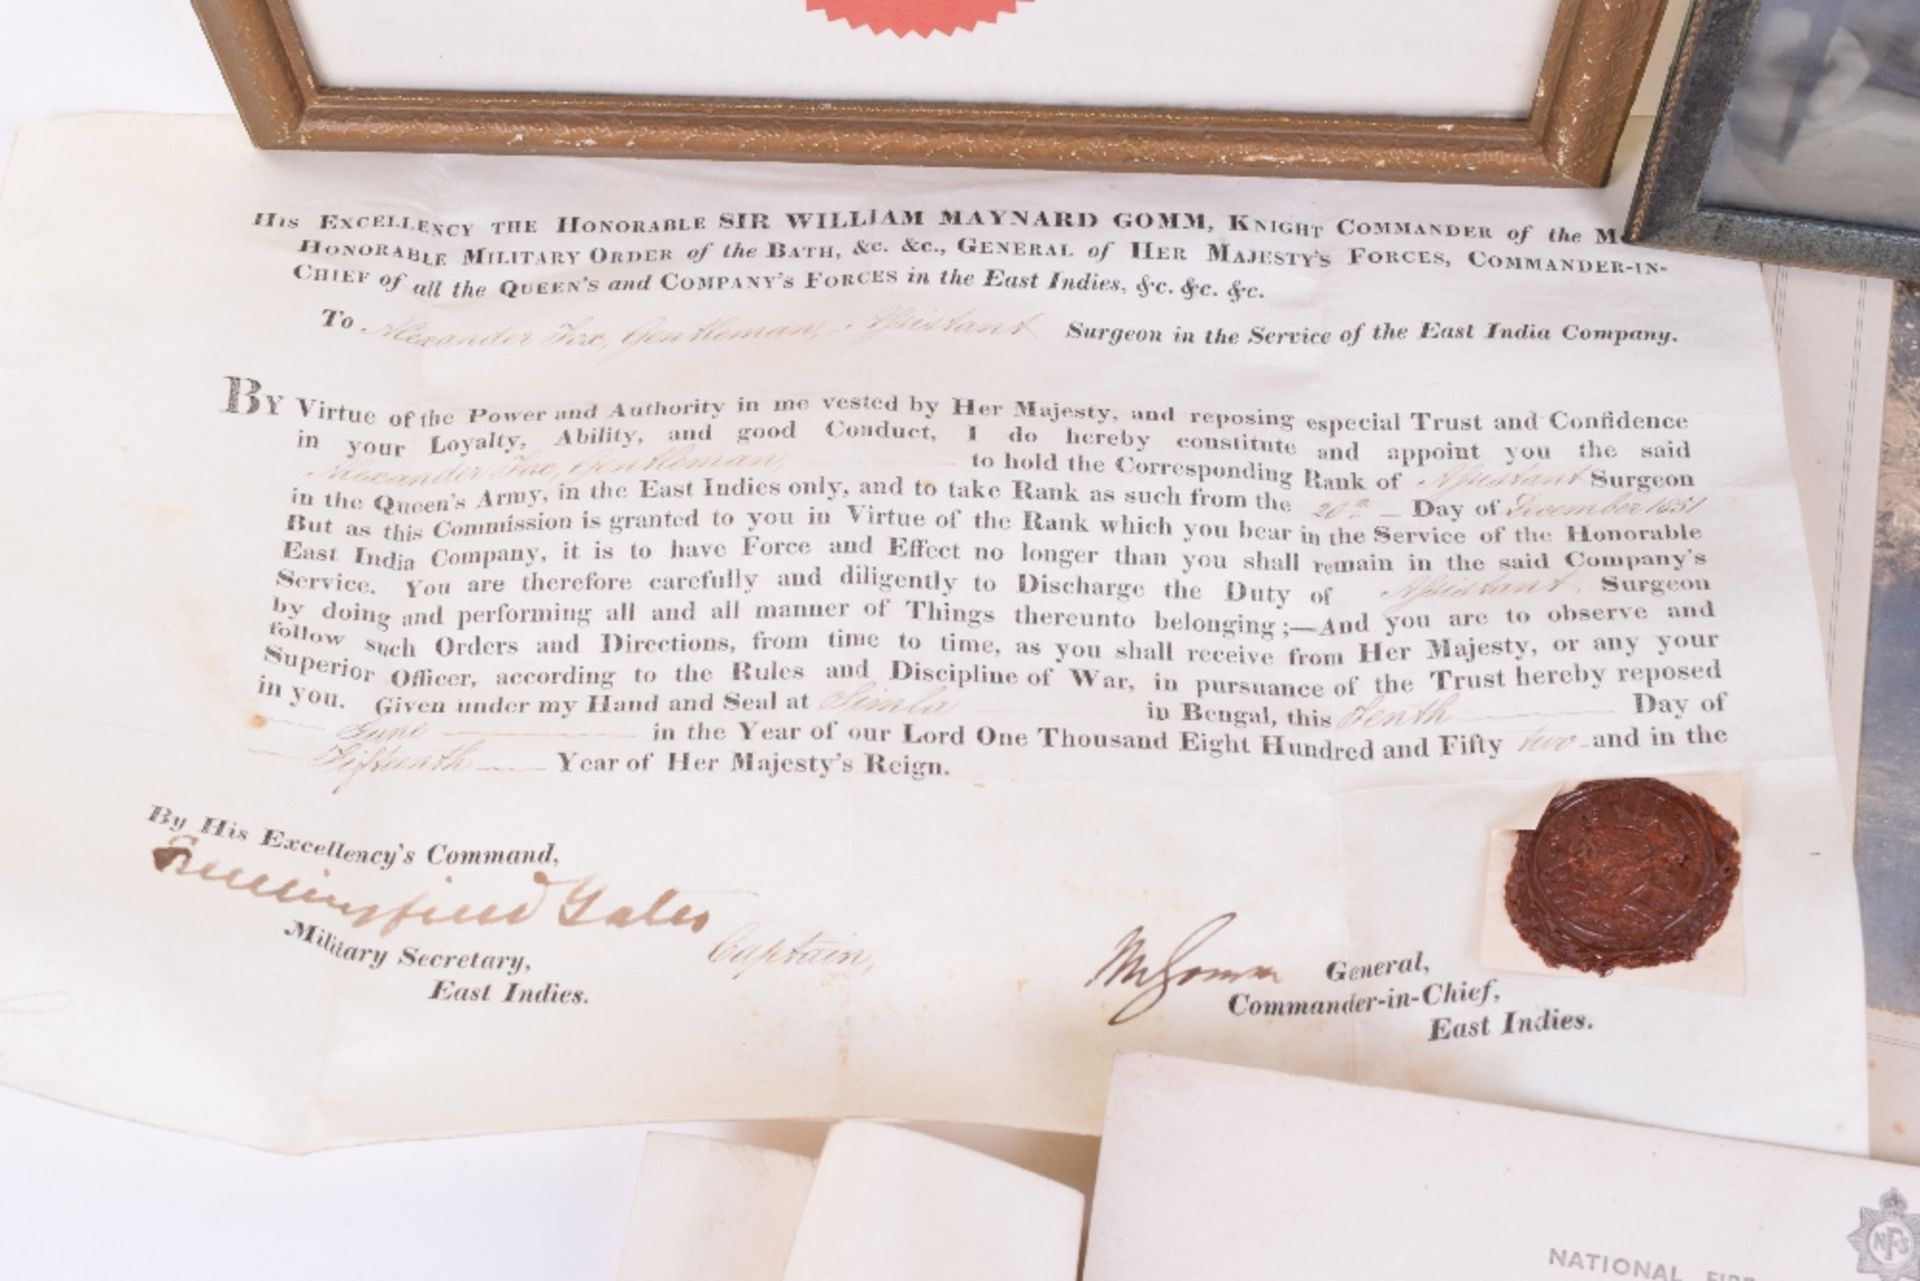 His Excellency the Honorable SIR WILLIAM MAYNARD GOMM, Knight Commander of the
Honorable Military Order of the Bath, &c. &c., General of Her Majesty's Forces, Commander-in-
Chief of all the Queen's and Company's Forces in the East Indies, &c. &c. &c.
To Alexander Fox, Gentleman, Assistant Surgeon in the Service of the East India Company.
By Virtue of the Power and Authority in me vested by Her Majesty, and reposing especial Trust and Confidence
in your Loyalty, Ability, and good Conduct, I do hereby constitute and appoint you the said
Alexander Fox, Gentleman, to hold the Corresponding Rank of Assistant Surgeon
in the Queen's Army, in the East Indies only, and to take Rank as such from the 20th Day of December 1851
But as this Commission is granted to you in Virtue of the Rank which you bear in the Service of the Honorable
East India Company, it is to have Force and Effect no longer than you shall remain in the said Company's
Service. You are therefore carefully and diligently to Discharge the Duty of Assistant Surgeon
by doing and performing all and all manner of Things thereunto belonging;—And you are to observe and
follow such Orders and Directions, from time to time, as you shall receive from Her Majesty, or any your
Superior Officer, according to the Rules and Discipline of War, in pursuance of the Trust hereby reposed
in you. Given under my Hand and Seal at Simla in Bengal, this Tenth Day of
June in the Year of our Lord One Thousand Eight Hundred and Fifty two and in the
Fifteenth Year of Her Majesty's Reign.
By His Excellency's Command,
Captain,
Military Secretary,
East Indies.
WmGomm General,
Commander-in-Chief,
East Indies.
NATIONAL FIRE
NFS